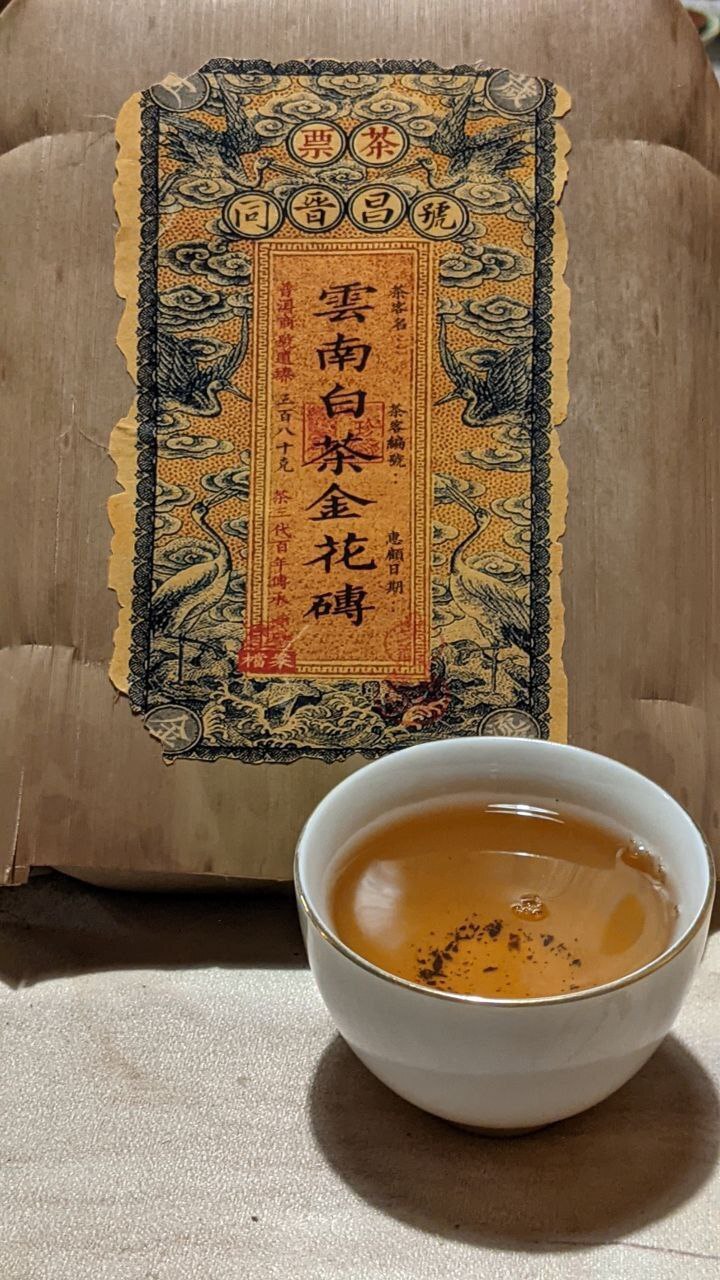 歲月
茶票
同晉昌號
茶客名： 茶客編號： 惠顧日期：
雲南白茶金花磚
普洱商 道 三百八十克 茶三代百年傳承
檔案
流